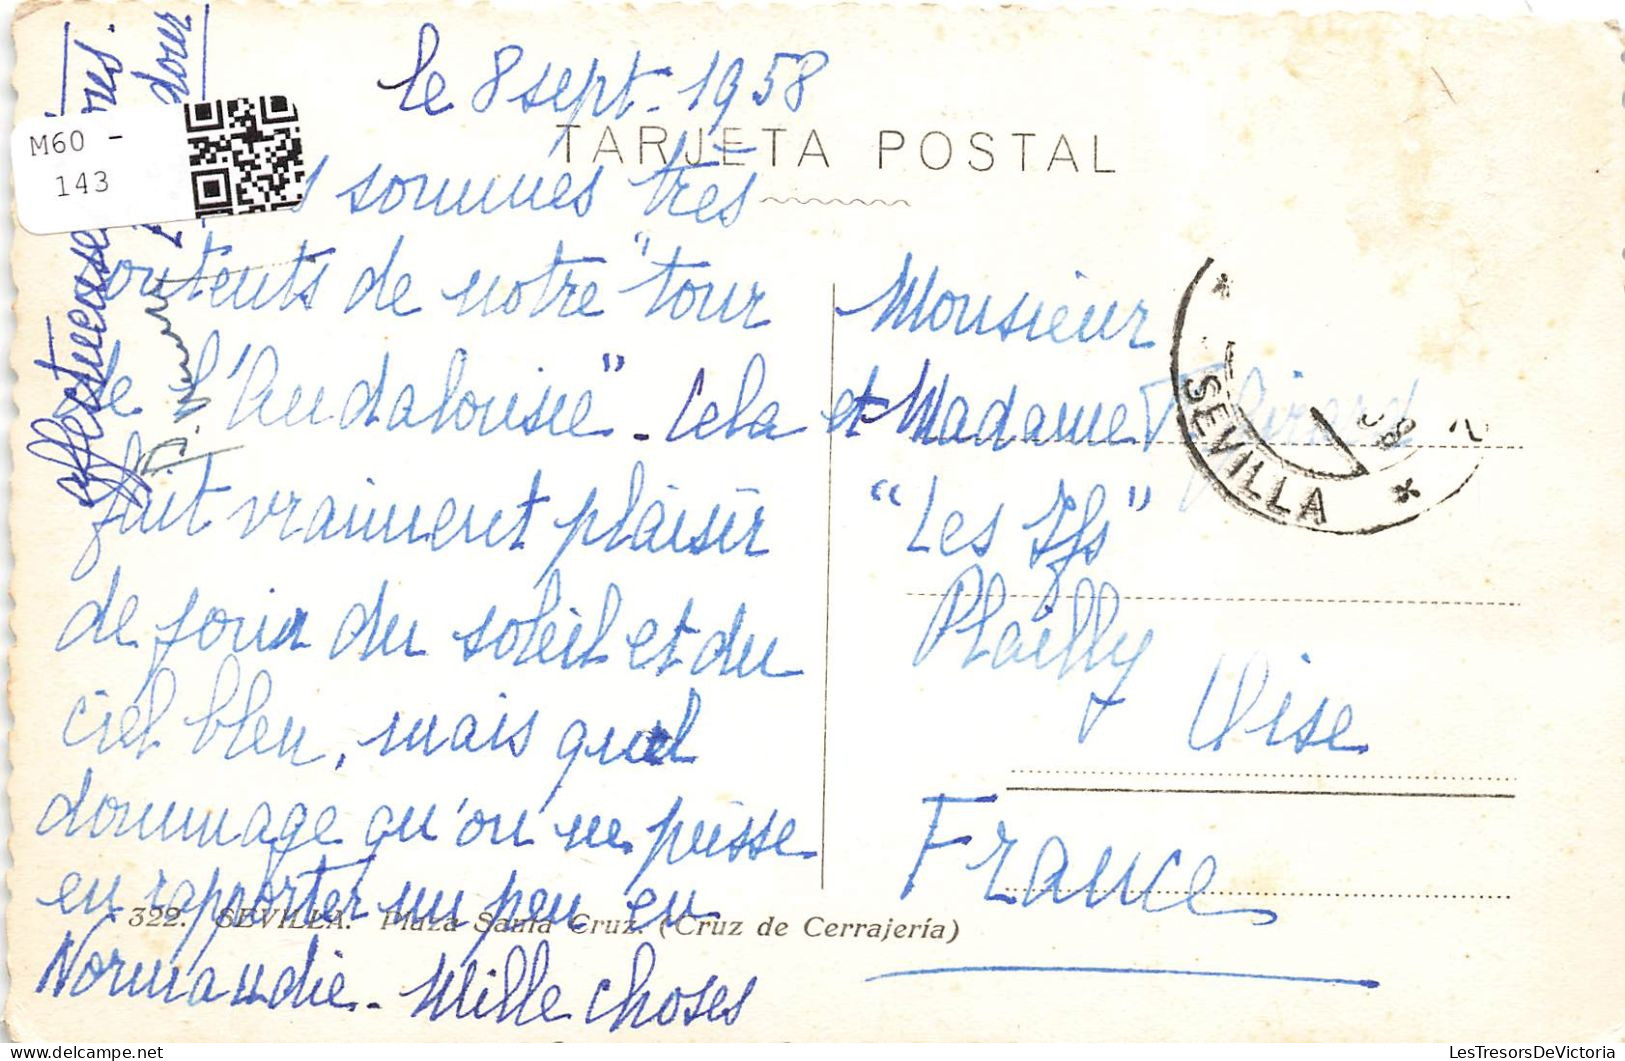 le 8 sept. 1958
TARJETA POSTAL
M60 -
143
sommes très
contents de notre "tour
de l'Andalousie". Cela
fait vraiment plaisir
de jouir du soleil et du
ciel bleu, mais quel
dommage qu'on ne puisse
en rapporter un peu en
Normandie. Mille choses
affectueuses
Monsieur
et Madame Girard
"Les Ifs"
Plailly
Oise
France
SEVILLA
322. SEVILLA. Plaza Santa Cruz. (Cruz de Cerrajería)
LesTresorsDeVictoria